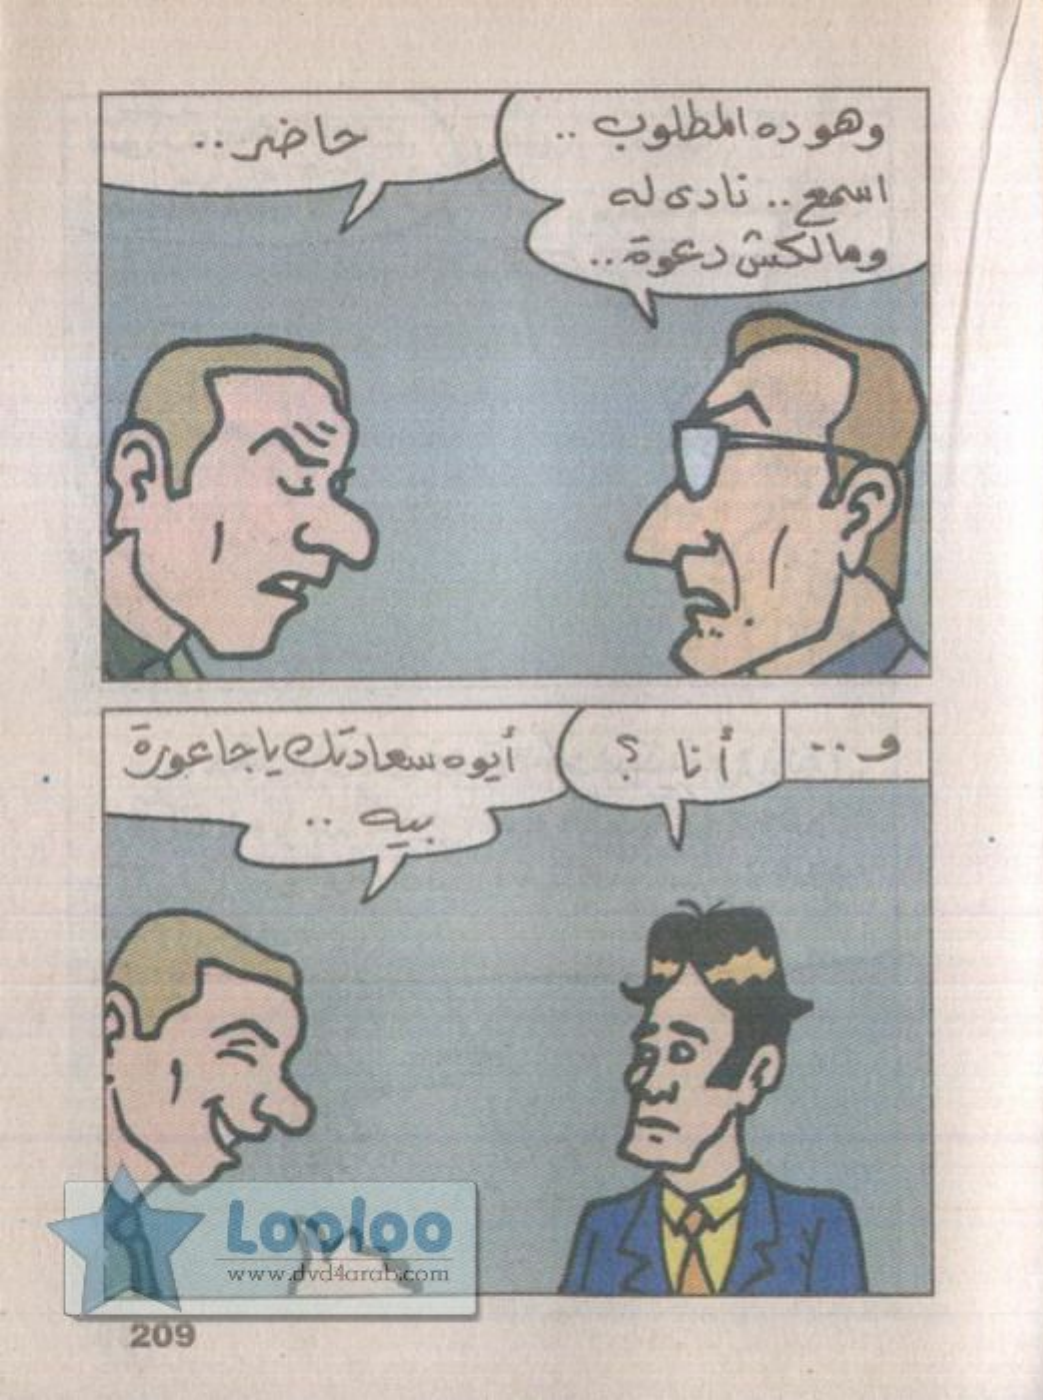 وهو ده المطلوب ..
اسمع .. نادى له
ومالكش دعوة ..
حاضر ..
و ..
أنا ؟
أيوه سعادتك يا جاعورة
بيه ..
Looloo
www.dvd4arab.com
209